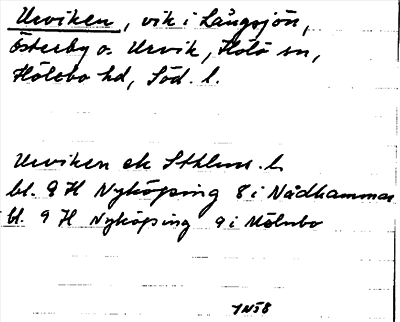 Urviken, vik i Långsjön,
Österby o. Urvik, Hölö sn,
Hölebo hd, Söd. l.
Urviken ek Sthlms. l.
bl. 9 H Nyköping 8 i Nådhammar
bl. 9 H Nyköping 9 i Mölnbo